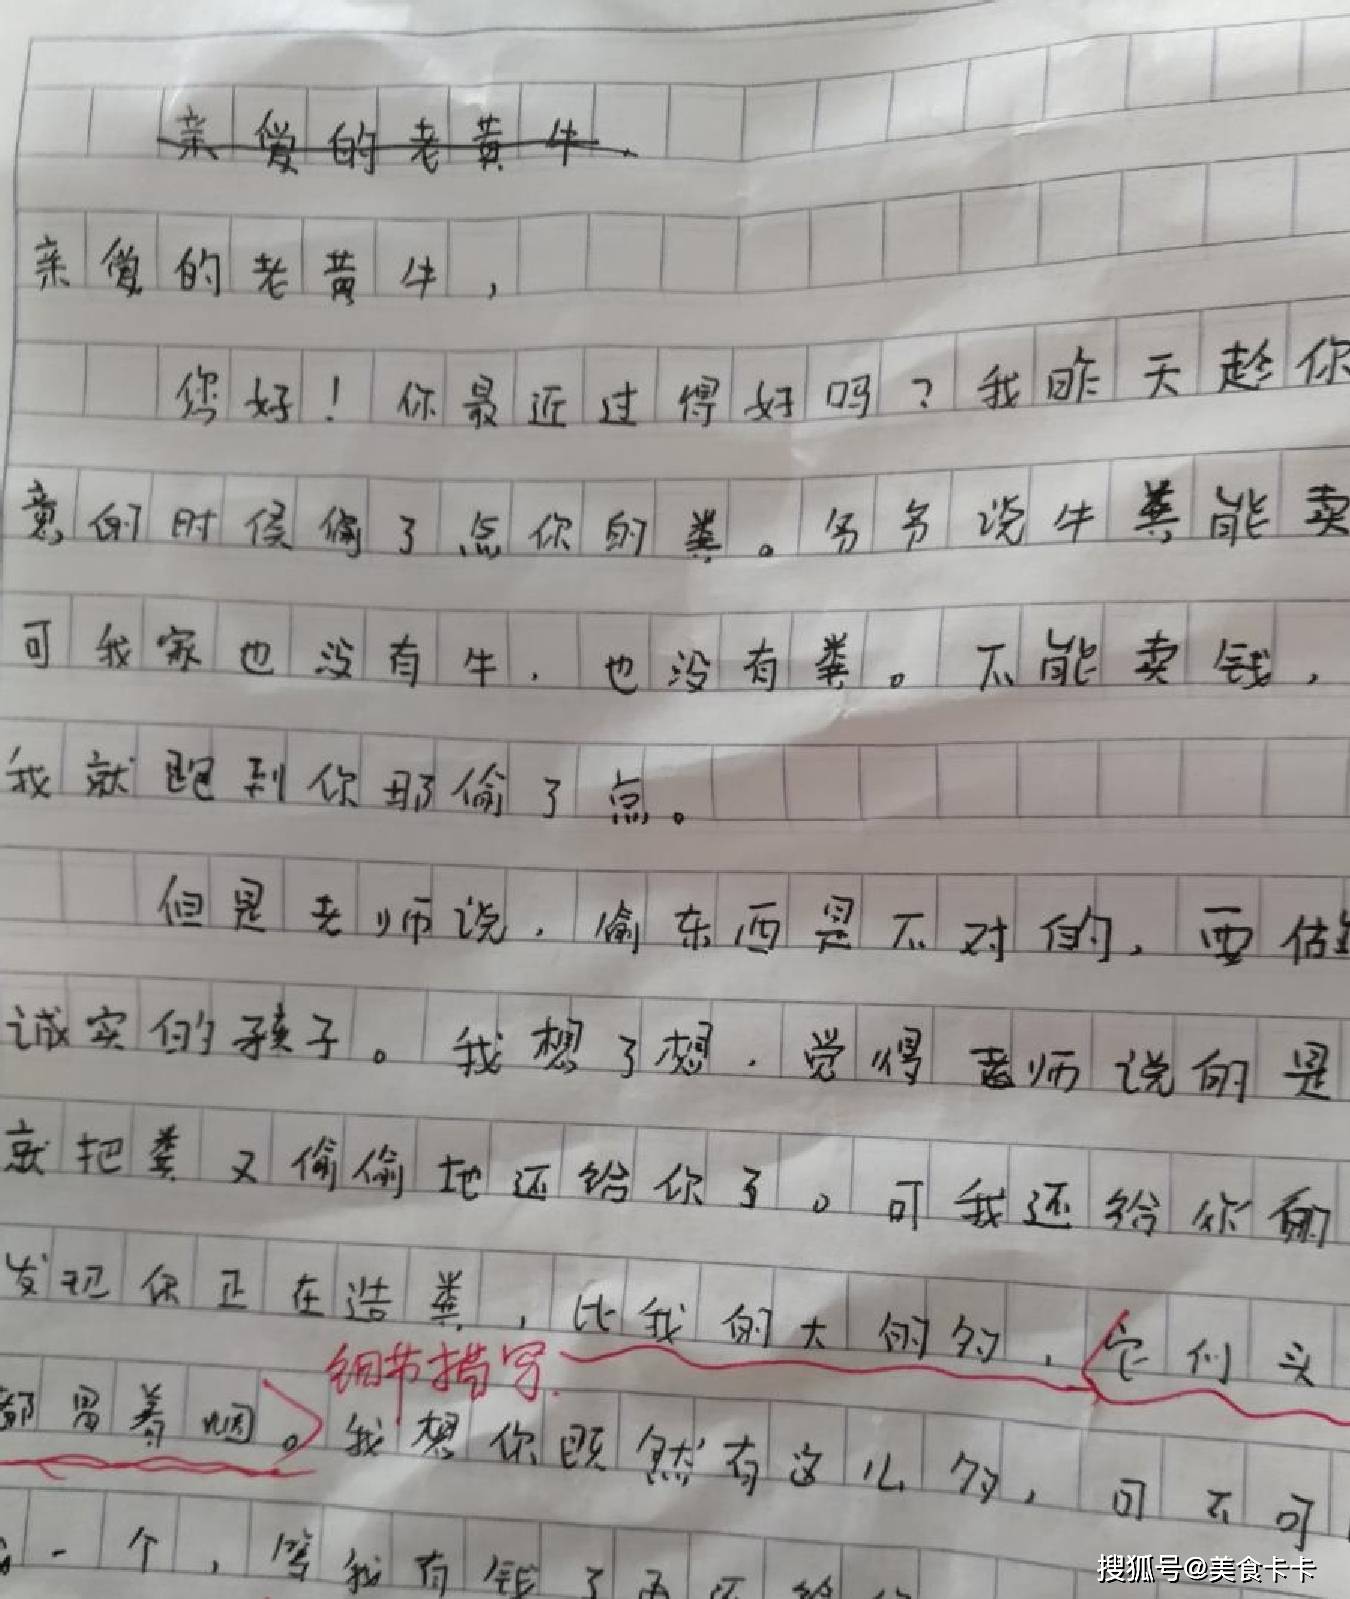 亲爱的老黄牛.
亲爱的老黄牛，
您好！你最近过得好吗？我昨天趁你
意的时侯偷了点你的粪。爷爷说牛粪能卖
可我家也没有牛，也没有粪。不能卖钱，
我就跑到你那偷了点。
但是老师说，偷东西是不对的，要做
诚实的孩子。我想了想，觉得老师说的是
就把粪又偷偷地还给你了。可我还给你的
发现你正在造粪，比我的大的多，它们头
细节描写.
都冒着烟。我想你既然有这么多，可不可
一个，等我有钱了再还给你
搜狐号@美食卡卡